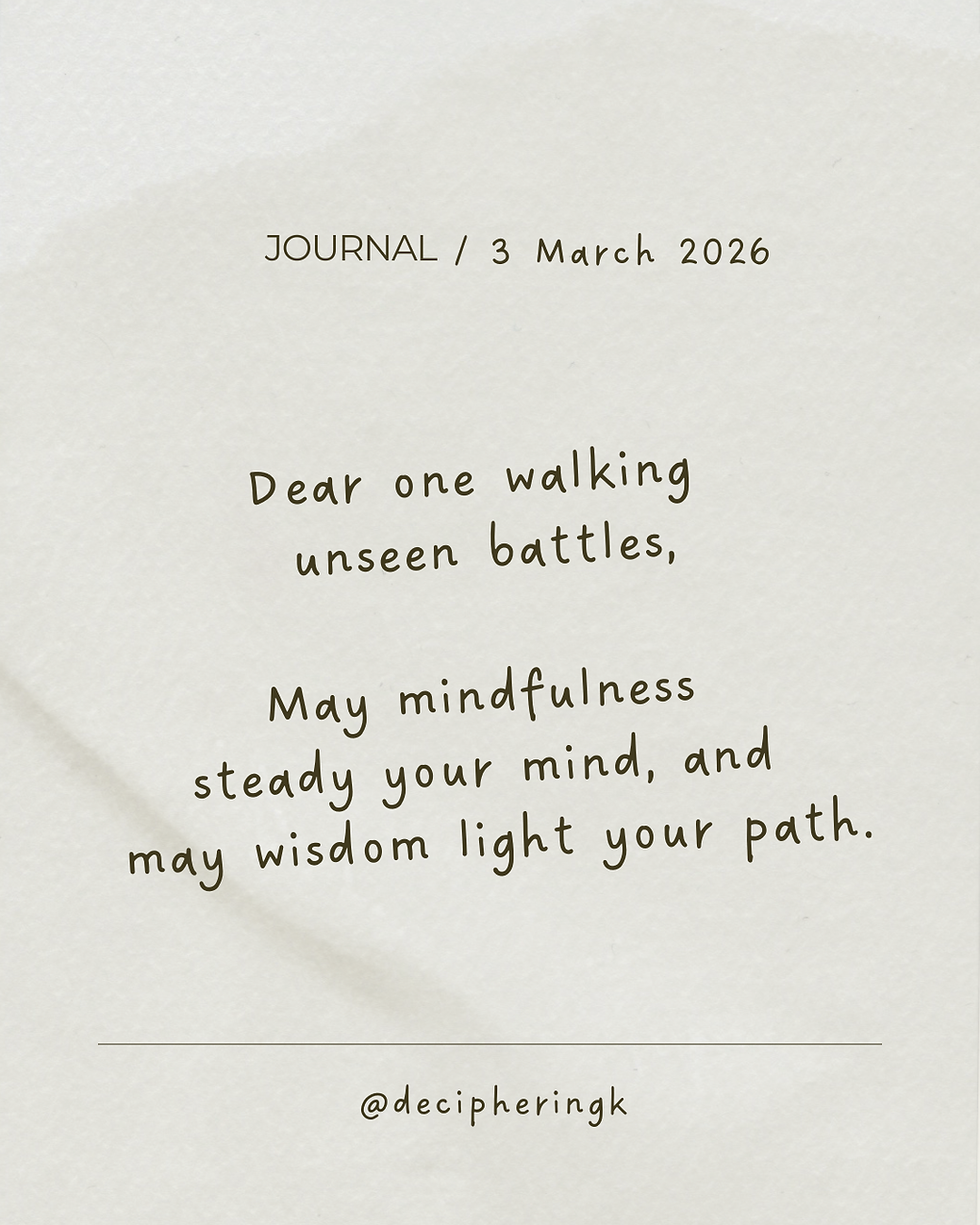 JOURNAL / 3 March 2026
Dear one walking
unseen battles,
May mindfulness
steady your mind, and
may wisdom light your path.
@decipheringk